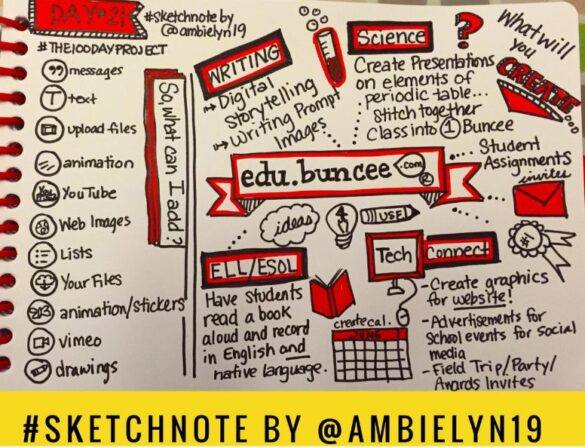 DAY #21
#sketchnote by
@ambielyn19
#THE100DAYPROJECT
messages
T text
upload files
animation
You Tube YouTube
Web Images
Lists
Your Files
animation/stickers
vimeo
drawings
So, what can I add?
WRITING
Digital
Storytelling
Writing Prompt
Images
Science
Create Presentations
on elements of
periodic table...
Stitch together
Class into 1 Buncee
?
What will
you
CREATE
edu.buncee.com
Student
Assignments
invites
ideas
4
USE
#1
ELL/ESOL
Have Students
read a book
aloud and record
in English and
native language.
create cal.
JUNE
Tech Connect
- Create graphics
for website!
- Advertisements for
School events for social
media
- Field Trip/Party/
Awards Invites
#SKETCHNOTE BY @AMBIELYN19